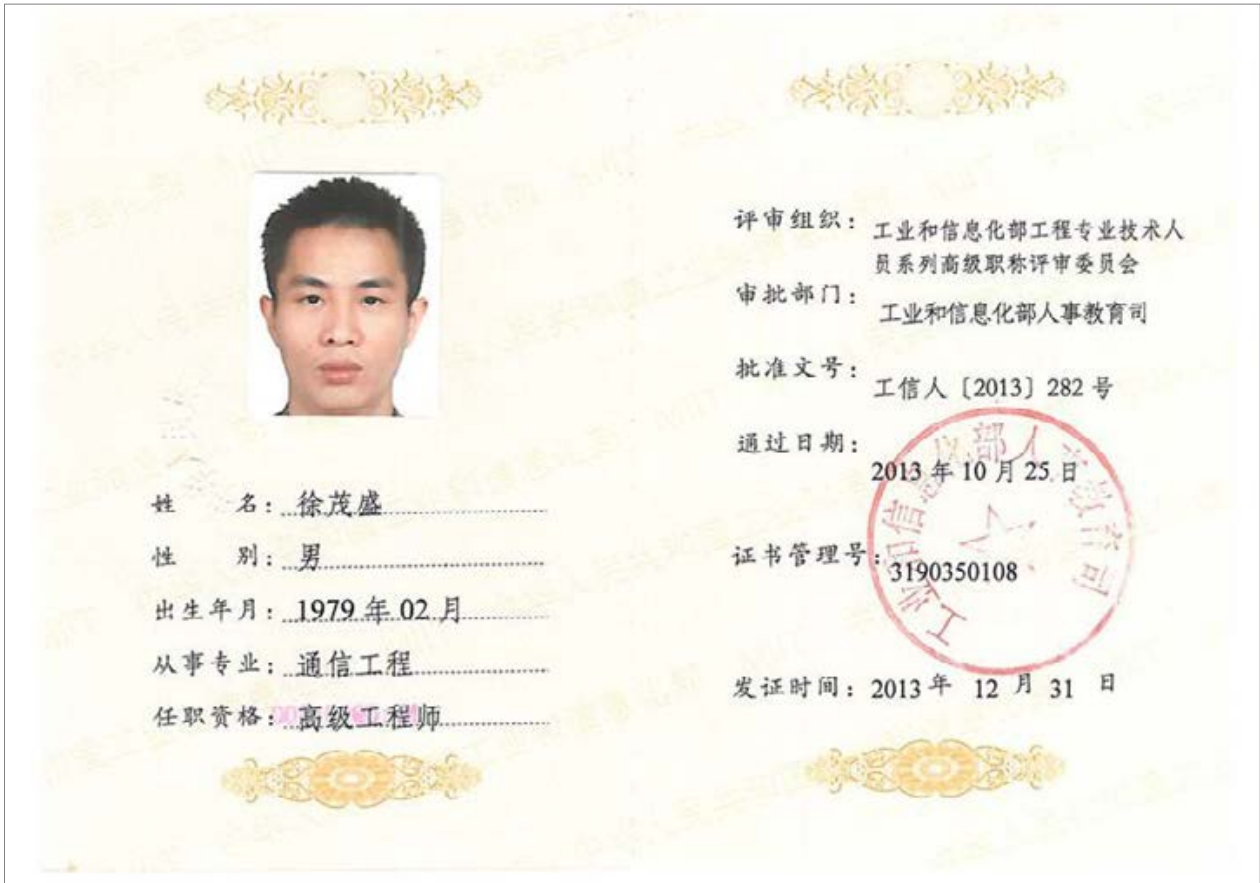 姓 名：徐茂盛
性 别：男
出生年月：1979 年 02 月
从事专业：通信工程
任职资格：高级工程师
评审组织：工业和信息化部工程专业技术人
员系列高级职称评审委员会
审批部门：工业和信息化部人事教育司
批准文号：工信人〔2013〕282 号
通过日期：2013 年 10 月 25 日
证书管理号：3190350108
发证时间：2013 年 12 月 31 日
工业和信息化部人事教育司